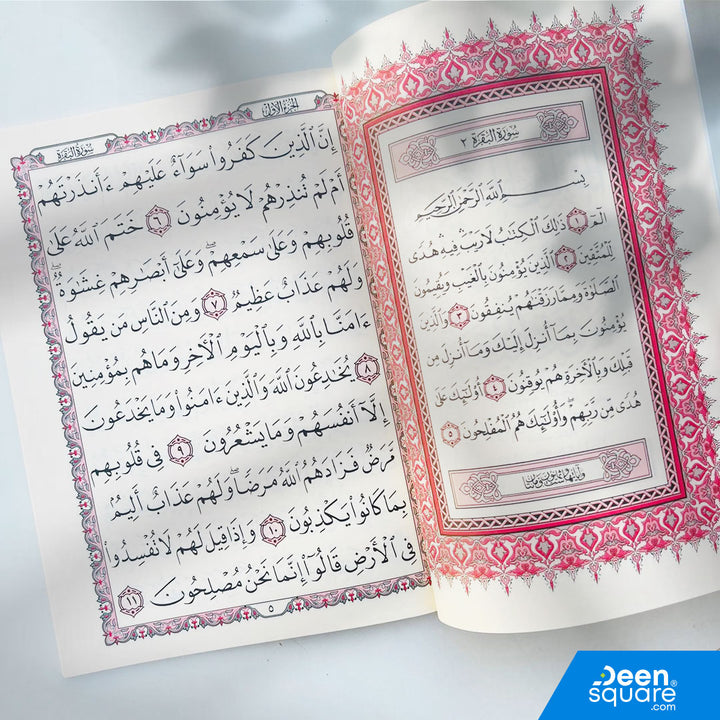 سُورَةُ البَقَرَةِ ٢
بِسْمِ اللَّهِ الرَّحْمَٰنِ الرَّحِيمِ
الٓمٓ ١ ذَٰلِكَ الْكِتَابُ لَا رَيْبَ فِيهِ هُدًى
لِلْمُتَّقِينَ ٢ الَّذِينَ يُؤْمِنُونَ بِالْغَيْبِ وَيُقِيمُونَ
الصَّلَوٰةَ وَمِمَّا رَزَقْنَٰهُمْ يُنفِقُونَ ٣ وَالَّذِينَ
يُؤْمِنُونَ بِمَا أُنزِلَ إِلَيْكَ وَمَا أُنزِلَ مِن
قَبْلِكَ وَبِالْأَخِرَةِ هُمْ يُوقِنُونَ ٤ أُوْلَٰئِكَ عَلَىٰ
هُدًى مِّن رَّبِّهِمْ وَأُوْلَٰئِكَ هُمُ الْمُفْلِحُونَ ٥
الجُزءُ الأوّلُ
سُورَةُ البَقَرَةِ
إِنَّ الَّذِينَ كَفَرُواْ سَوَآءٌ عَلَيْهِمْ ءَأَنذَرْتَهُمْ
أَمْ لَمْ تُنذِرْهُمْ لَا يُؤْمِنُونَ ٦ خَتَمَ اللَّهُ عَلَىٰ
قُلُوبِهِمْ وَعَلَىٰ سَمْعِهِمْ وَعَلَىٰ أَبْصَٰرِهِمْ غِشَٰوَةٌ
وَلَهُمْ عَذَابٌ عَظِيمٌ ٧ وَمِنَ النَّاسِ مَن يَقُولُ
ءَامَنَّا بِاللَّهِ وَبِالْيَوْمِ الْأَخِرِ وَمَا هُم بِمُؤْمِنِينَ
٨ يُخَٰدِعُونَ اللَّهَ وَالَّذِينَ ءَامَنُواْ وَمَا يَخْدَعُونَ
إِلَّا أَنفُسَهُمْ وَمَا يَشْعُرُونَ ٩ فِي قُلُوبِهِم
مَّرَضٌ فَزَادَهُمُ اللَّهُ مَرَضًا وَلَهُمْ عَذَابٌ أَلِيمٌ
بِمَا كَانُواْ يَكْذِبُونَ ١٠ وَإِذَا قِيلَ لَهُمْ لَا تُفْسِدُواْ
فِي الْأَرْضِ قَالُواْ إِنَّمَا نَحْنُ مُصْلِحُونَ ١١
٥
Deen
square®
.com